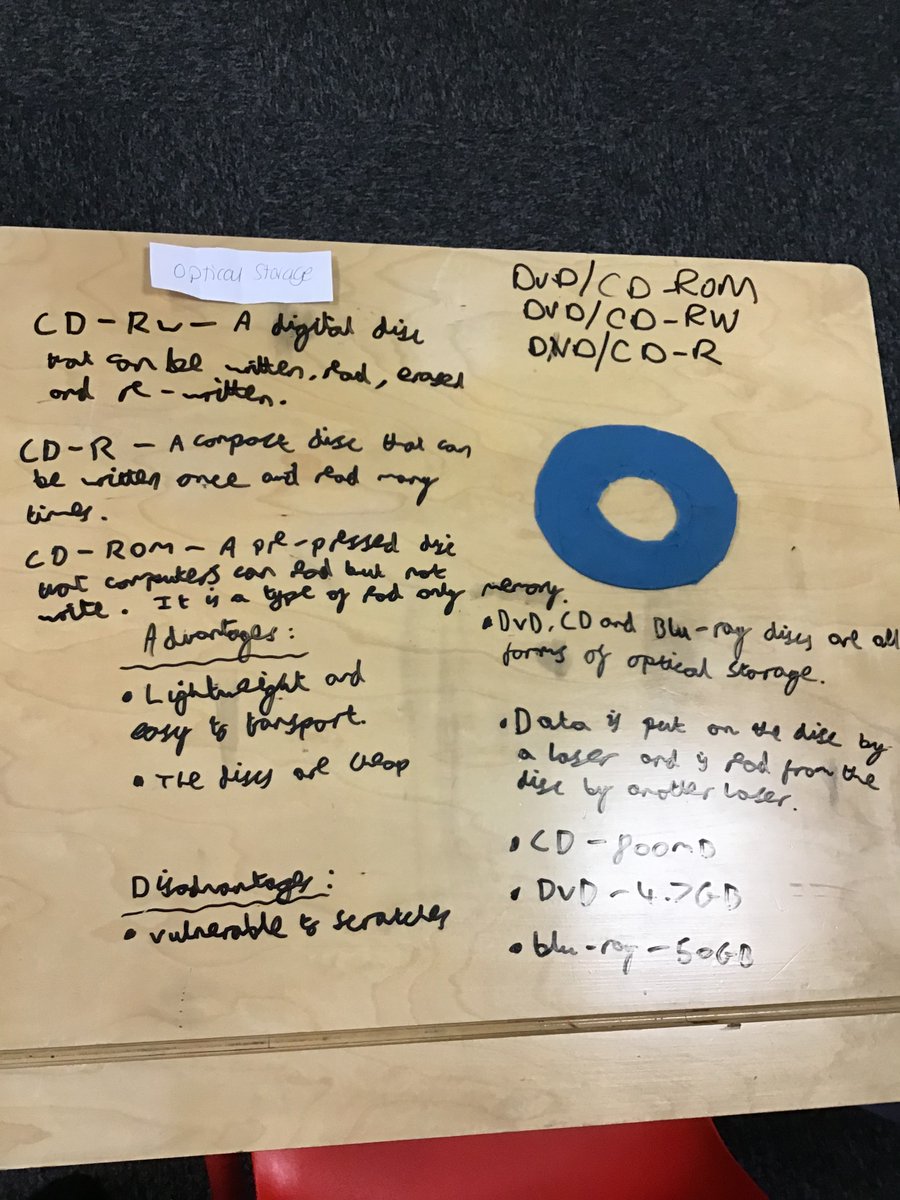 Optical Storage
CD-RW - A digital disc
that can be written, read, erased
and re-written.
CD-R - A compact disc that can
be written once and read many
times.
CD-ROM - A pre-pressed disc
that computers can read but not
write. It is a type of read only memory.
Advantages:
• Lightweight and
easy to transport.
• The discs are cheap
Disadvantages:
• vulnerable to scratches
DVD/CD-ROM
DVD/CD-RW
DVD/CD-R
• DVD, CD and Blu-ray discs are all
forms of optical storage.
• Data is put on the disc by
a laser and is read from the
disc by another laser.
• CD - 800MB
• DVD - 4.7GB
• blu-ray - 50GB